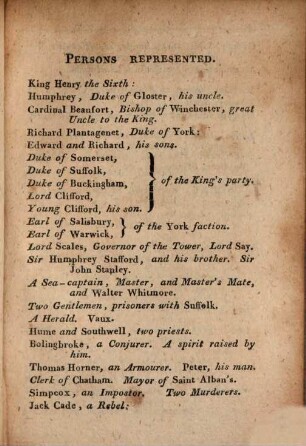 PERSONS REPRESENTED.
King Henry the Sixth:
Humphrey, Duke of Gloster, his uncle.
Cardinal Beaufort, Bishop of Winchester, great
Uncle to the King.
Richard Plantagenet, Duke of York:
Edward and Richard, his sons.
Duke of Somerset,
Duke of Suffolk,
Duke of Buckingham,
of the King's party.
Lord Clifford,
Young Clifford, his son.
Earl of Salisbury,
of the York faction.
Earl of Warwick,
Lord Scales, Governor of the Tower, Lord Say.
Sir Humphrey Stafford, and his brother. Sir
John Stanley.
A Sea-captain, Master, and Master's Mate,
and Walter Whitmore.
Two Gentlemen, prisoners with Suffolk.
A Herald. Vaux.
Hume and Southwell, two priests.
Bolingbroke, a Conjurer. A spirit raised by
him.
Thomas Horner, an Armourer. Peter, his man.
Clerk of Chatham. Mayor of Saint Alban's.
Simpcox, an Impostor. Two Murderers.
Jack Cade, a Rebel: